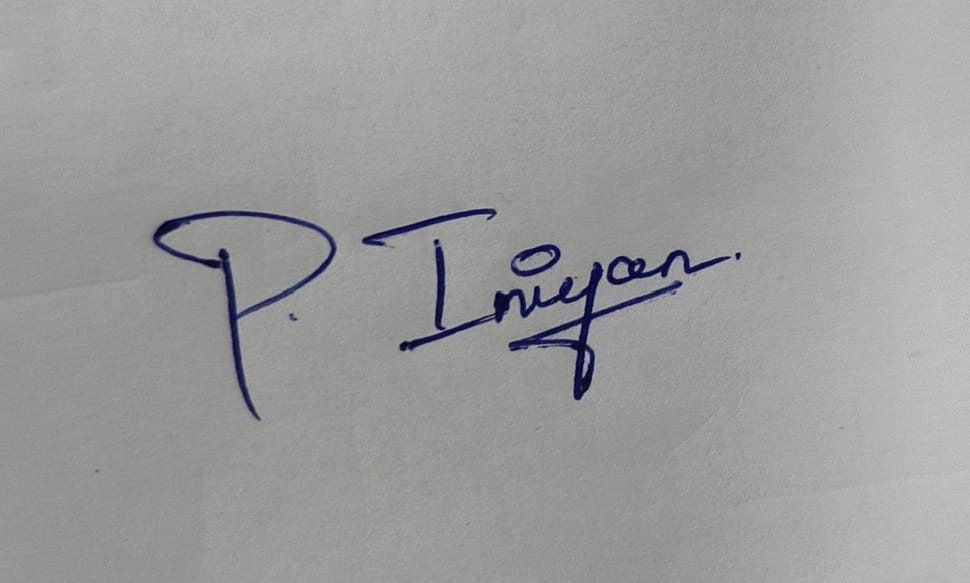 P. Iniyan.